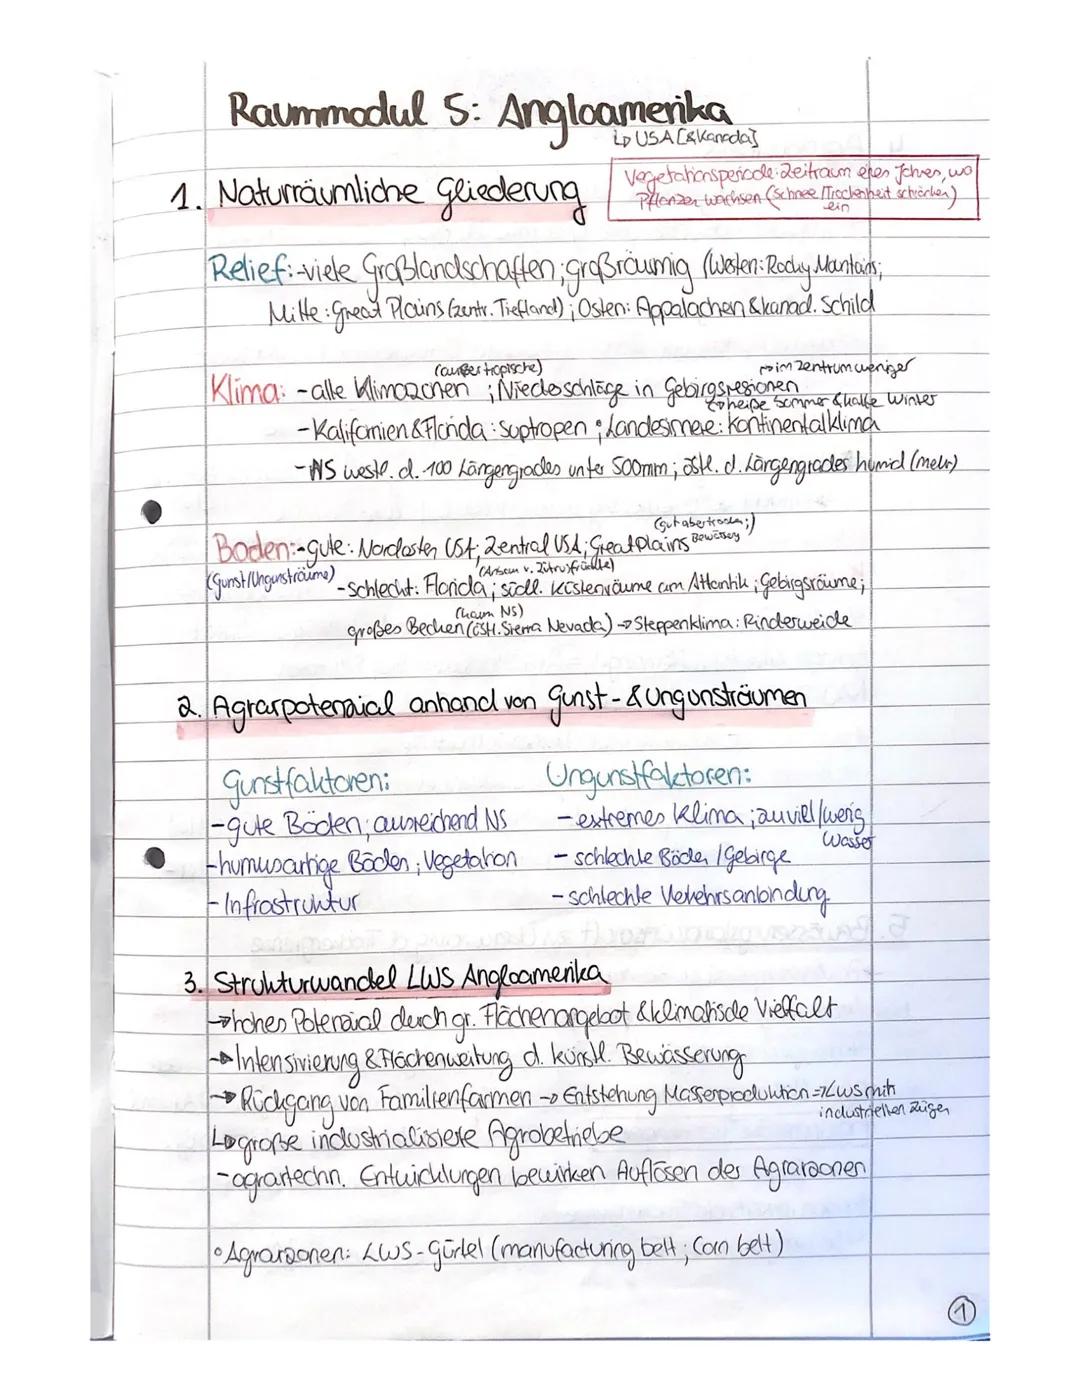 Raummodul 5: Angloamerika
↳ USA [& Kanada]
1. Naturräumliche Gliederung
Vegetationsperiode: Zeitraum eines Jahres, wo
Pflanzen wachsen (Schnee/Trockenheit schränken)
ein
Relief: - viele Großlandschaften; großräumig (Westen: Rocky Mantains;
Mitte: Great Plains (zentr. Tiefland); Osten: Appalachen & kanad. Schild
(außertropische) → im Zentrum weniger
Klima: - alle Klimazonen ; Niederschläge in Gebirgsregionen
↳ heiße Sommer & kalte Winter
- Kalifornien & Florida: suptropen; Landesinnere: kontinentalklima
- NS westl. d. 100 Längengrades unter 500mm; östl. d. Längengrades humid (mehr)
(gut aber trocken;)
Boden: - gute: Nordosten USA; Zentral USA; Great Plains Bewässerg
(Gunst/Ungunsträume) (Anbau v. Zitrusfrüchte)
- schlecht: Florida; südl. Küstenräume am Atlantik; Gebirgsräume;
(kaum NS)
großes Becken (östl. Sierra Nevada) → Steppenklima: Rinderweide
2. Agrarpotenzial anhand von Gunst- & Ungunsträumen
Gunstfaktoren: Ungunstfaktoren:
- gute Böden; ausreichend NS - extremes Klima; zu viel/wenig
Wasser
- humusartige Böden; Vegetation - schlechte Böden / Gebirge
- Infrastruktur - schlechte Verkehrsanbindung
3. Strukturwandel LWS Angloamerika
→ hohes Potenzial durch gr. Flächenangebot & klimatische Vielfalt
→ Intensivierung & Flächenweitung d. künstl. Bewässerung
→ Rückgang von Familienfarmen → Entstehung Massenproduktion ⇒ LWS mit
industriellen Zügen
↳ große industrialisierte Agrobetriebe
- agrartechn. Entwicklungen bewirken Auflösen der Agrarzonen
° Agrarzonen: LWS-Gürtel (manufacturing belt; Corn belt)
1